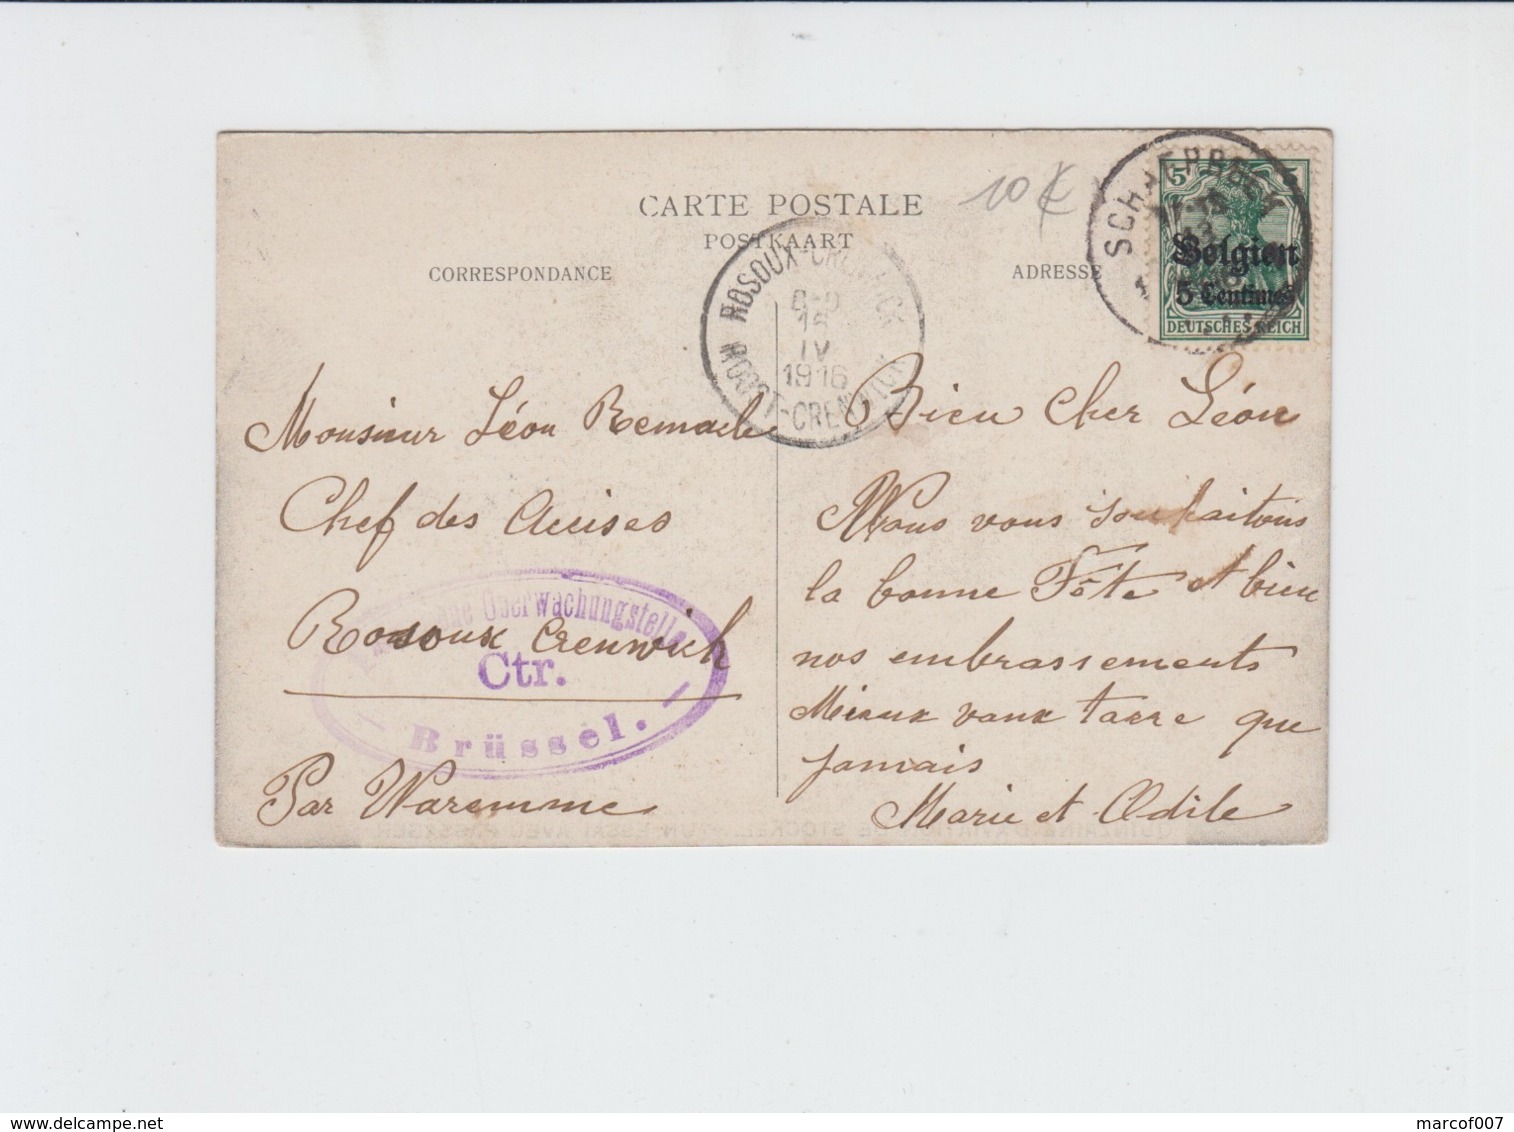 CARTE POSTALE
POSTKAART
CORRESPONDANCE
ADRESSE
10 €
5
Belgien
5 Centimes
DEUTSCHES REICH
SCHAERBEEK
ROSOUX-CRENWICK
15
IV
1916
ROOST-CRENWICK
Monsieur Léon Remacle
Chef des Accises
Rosoux Crenwich
Par Waremme
Oberwachungstelle
Ctr.
Brüssel.
Bien Cher Léon
Nous vous souhaitons
la bonne Fête et bien
nos embrassements
Mieux vaux tarre que
jamais
Marie et Odile
marcof007
delcampe.net